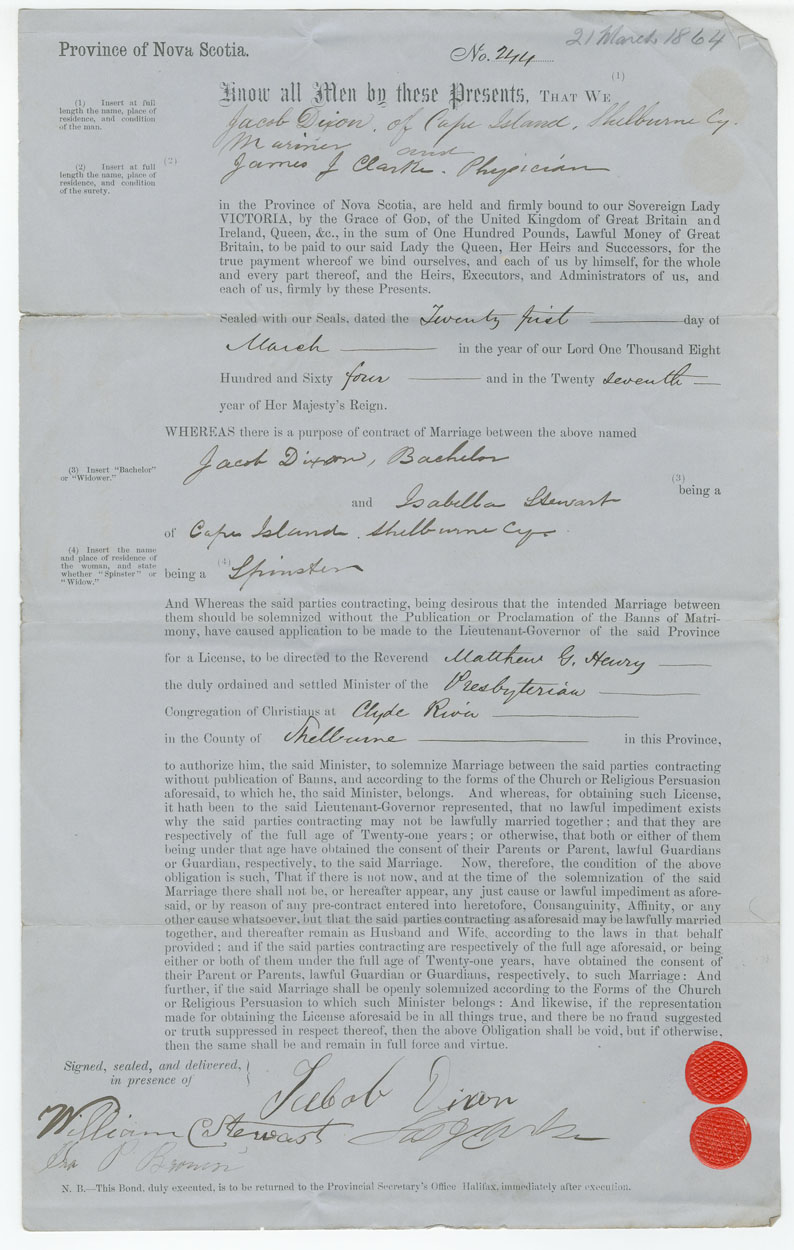 21 March 1864
Province of Nova Scotia.
No. 244
(1)
Know all Men by these Presents, THAT WE
(1) Insert at full
length the name, place of
residence, and condition
of the man.
Jacob Dixon, of Cape Island, Shelburne Cy.
Mariner and
(2) Insert at full
length the name, place of
residence, and condition
of the surety.
(2)
James J Clarke. Physician
in the Province of Nova Scotia, are held and firmly bound to our Sovereign Lady
VICTORIA, by the Grace of GOD, of the United Kingdom of Great Britain and
Ireland, Queen, &c., in the sum of One Hundred Pounds, Lawful Money of Great
Britain, to be paid to our said Lady the Queen, Her Heirs and Successors, for the
true payment whereof we bind ourselves, and each of us by himself, for the whole
and every part thereof, and the Heirs, Executors, and Administrators of us, and
each of us, firmly by these Presents.
Sealed with our Seals, dated the Twenty first day of
March in the year of our Lord One Thousand Eight
Hundred and Sixty four and in the Twenty seventh
year of Her Majesty's Reign.
WHEREAS there is a purpose of contract of Marriage between the above named
(3) Insert "Bachelor"
or "Widower."
Jacob Dixon, Bachelor
(3)
being a
and Isabella Stewart
of Cape Island. Shelburne Cy
(4) Insert the name
and place of residence of
the woman, and state
whether "Spinster" or
"Widow."
being a (4) Spinster
And Whereas the said parties contracting, being desirous that the intended Marriage between
them should be solemnized without the Publication or Proclamation of the Banns of Matri-
mony, have caused application to be made to the Lieutenant-Governor of the said Province
for a License, to be directed to the Reverend Matthew G. Henry
the duly ordained and settled Minister of the Presbyterian
Congregation of Christians at Clyde River
in the County of Shelburne in this Province,
to authorize him, the said Minister, to solemnize Marriage between the said parties contracting
without publication of Banns, and according to the forms of the Church or Religious Persuasion
aforesaid, to which he, the said Minister, belongs. And whereas, for obtaining such License,
it hath been to the said Lieutenant-Governor represented, that no lawful impediment exists
why the said parties contracting may not be lawfully married together; and that they are
respectively of the full age of Twenty-one years; or otherwise, that both or either of them
being under that age have obtained the consent of their Parents or Parent, lawful Guardians
or Guardian, respectively, to the said Marriage. Now, therefore, the condition of the above
obligation is such, That if there is not now, and at the time of the solemnization of the said
Marriage there shall not be, or hereafter appear, any just cause or lawful impediment as afore-
said, or by reason of any pre-contract entered into heretofore, Consanguinity, Affinity, or any
other cause whatsoever, but that the said parties contracting as aforesaid may be lawfully married
together, and thereafter remain as Husband and Wife, according to the laws in that behalf
provided; and if the said parties contracting are respectively of the full age aforesaid, or being
either or both of them under the full age of Twenty-one years, have obtained the consent of
their Parent or Parents, lawful Guardian or Guardians, respectively, to such Marriage: And
further, if the said Marriage shall be openly solemnized according to the Forms of the Church
or Religious Persuasion to which such Minister belongs: And likewise, if the representation
made for obtaining the License aforesaid be in all things true, and there be no fraud suggested
or truth suppressed in respect thereof, then the above Obligation shall be void, but if otherwise,
then the same shall be and remain in full force and virtue.
Signed, sealed, and delivered,
in presence of
Jacob Dixon
William C Stewart
Jas J Clarke
P Brown
N. B.—This Bond, duly executed, is to be returned to the Provincial Secretary's Office Halifax, immediately after execution.